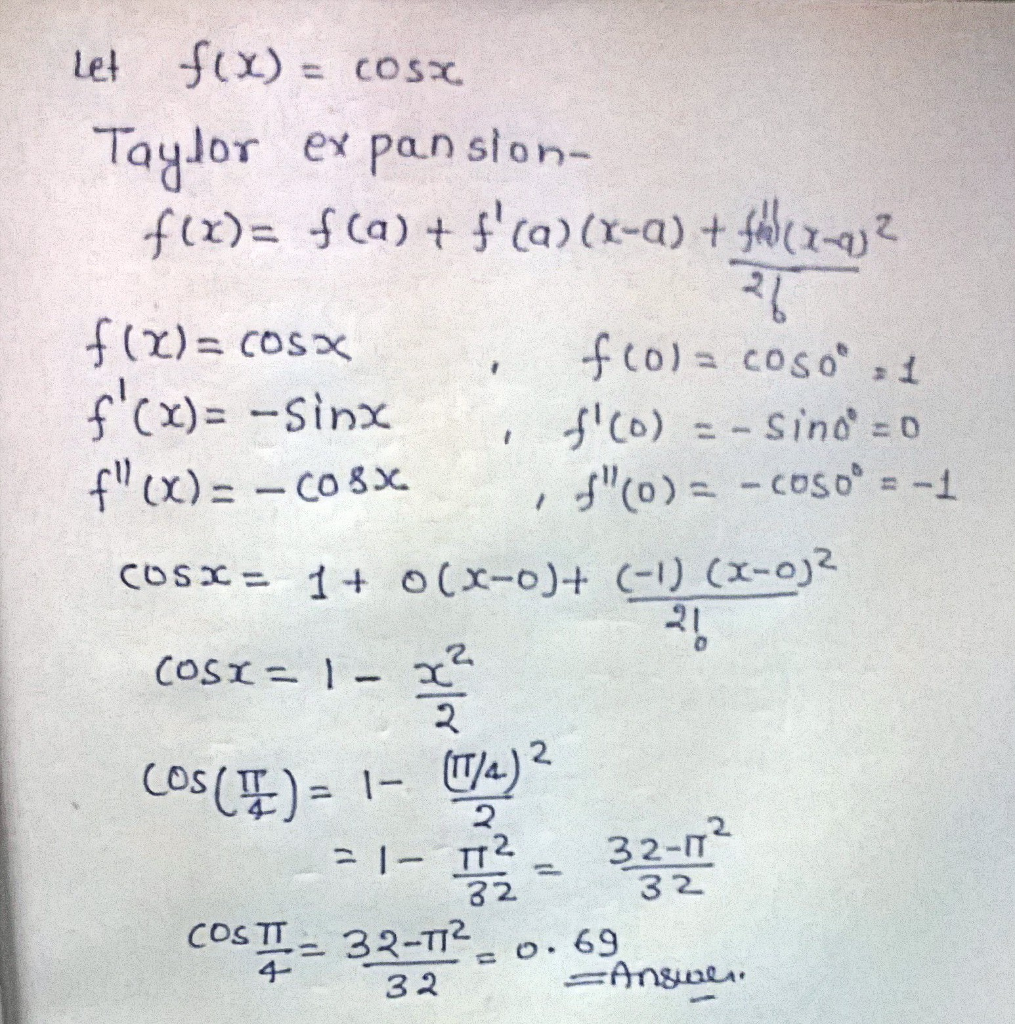 Let f(x) = cosx
Taylor expansion-
f(x) = f(a) + f'(a)(x-a) + f''(a)(x-a)²/2!
f(x) = cosx , f(0) = cos0° = 1
f'(x) = -Sinx , f'(0) = -Sin0° = 0
f''(x) = -cosx , f''(0) = -cos0° = -1
cosx = 1 + 0(x-0) + (-1)(x-0)²/2!
cosx = 1 - x²/2
cos(π/4) = 1 - (π/4)²/2
= 1 - π²/32 = 32-π²/32
cos π/4 = 32-π²/32 = 0.69
= Answer.